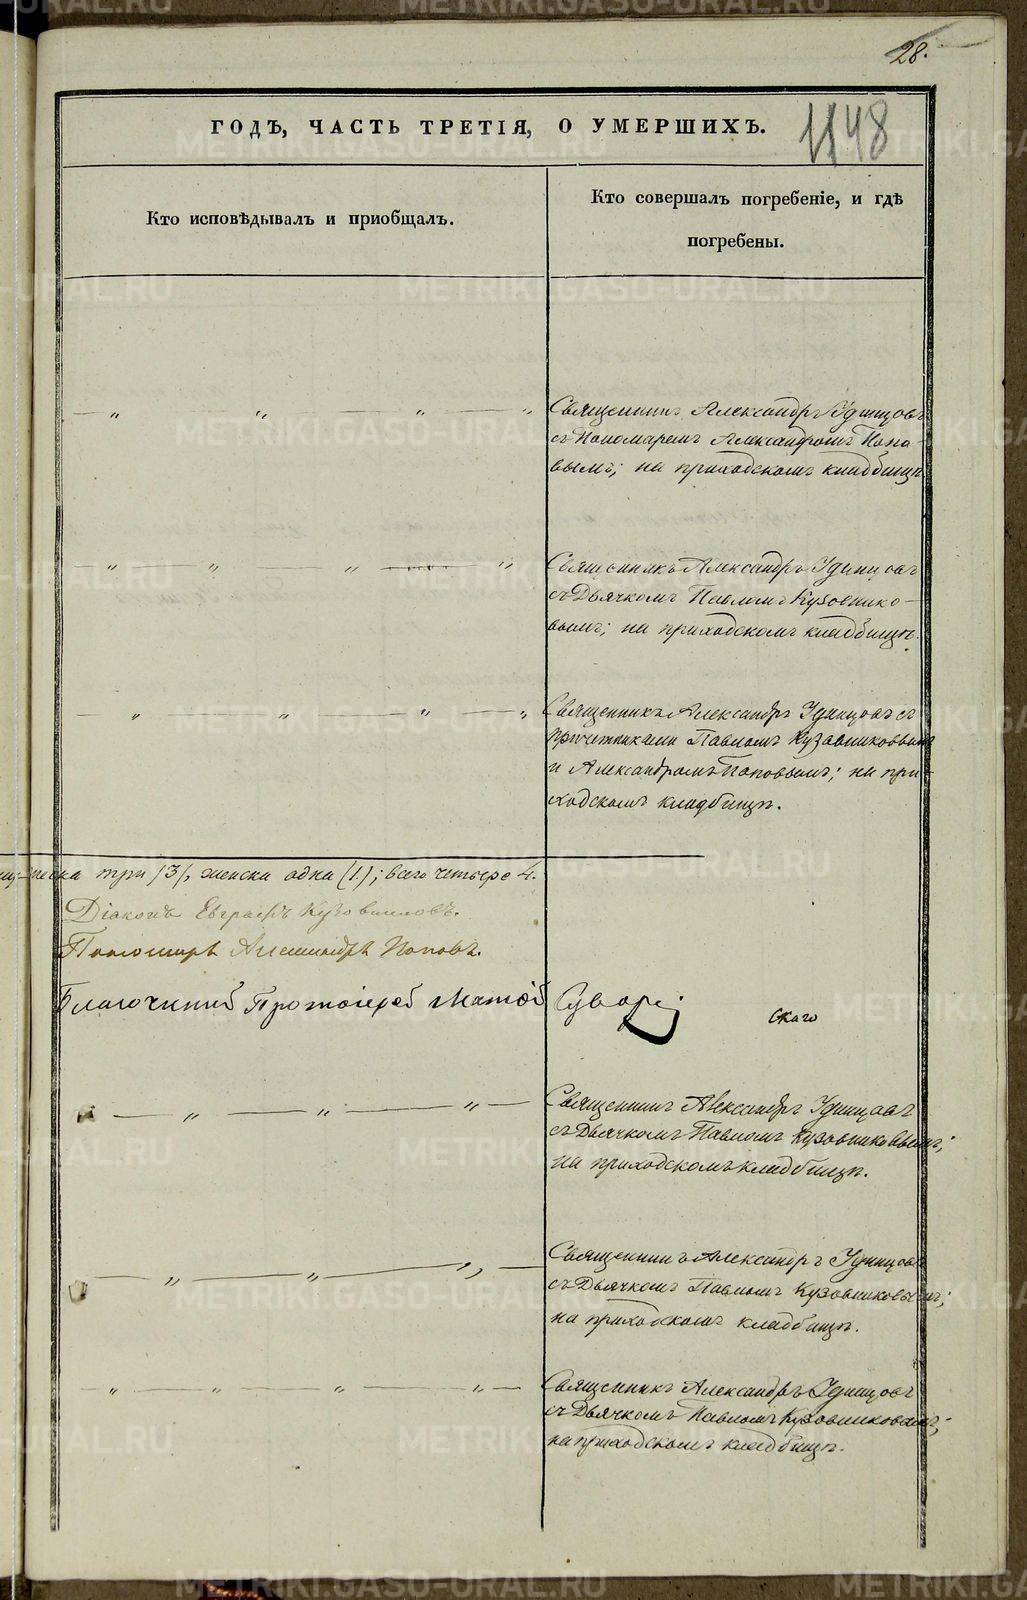 28.
ГОДЪ, ЧАСТЬ ТРЕТІЯ, О УМЕРШИХЪ.
1148
Кто исповѣдывалъ и приобщалъ.
Кто совершалъ погребеніе, и гдѣ
погребены.
Священникъ Александръ Удинцовъ
съ Пономаремъ Александромъ Попо-
вымъ; на приходскомъ кладбищѣ
Священникъ Александръ Удинцовъ
съ Дьячкомъ Павломъ Кузовнико-
вымъ; на приходскомъ кладбищѣ.
Священникъ Александръ Удинцовъ съ
причетниками Павломъ Кузовниковымъ
и Александромъ Поповымъ; на при-
ходскомъ кладбищѣ.
три (3), женска одна (1); всего четыре 4.
Діаконъ Евграфъ Кузовниковъ.
Пономарь Александръ Поповъ.
Благочинный Протоіерей
скаго
Священникъ Александръ Удинцовъ
съ Дьячкомъ Павломъ Кузовниковымъ;
на приходскомъ кладбищѣ.
Священникъ Александръ Удинцовъ
съ Дьячкомъ Павломъ Кузовниковымъ;
на приходскомъ кладбищѣ.
Священникъ Александръ Удинцовъ
съ Дьячкомъ Павломъ Кузовниковымъ;
на приходскомъ кладбищѣ.
METRIKI.GASO-URAL.RU